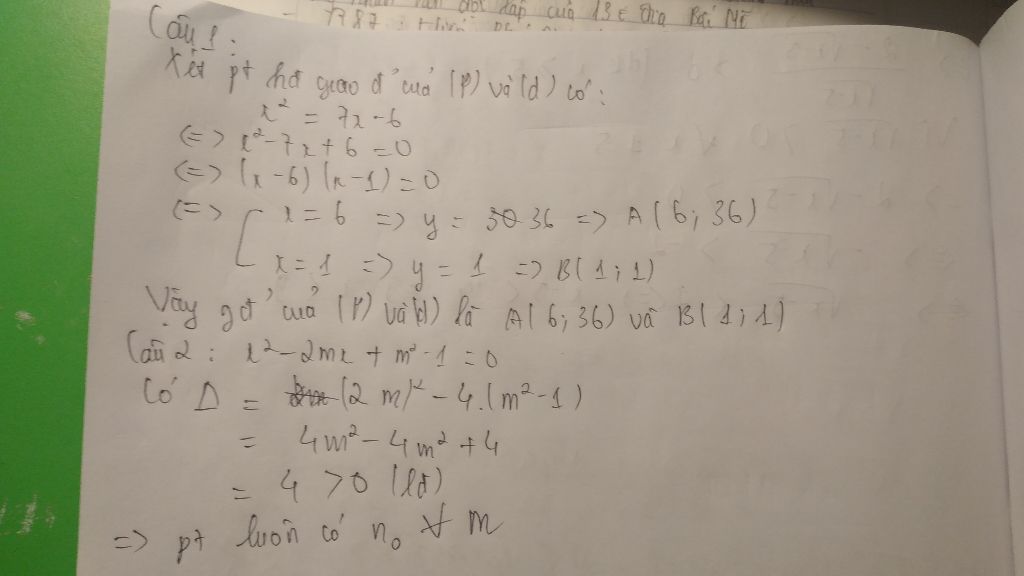 Câu 1:
Xét pt hđ giao đ' của (P) và (d) có:
x² = 7x - 6
<=> x² - 7x + 6 = 0
<=> (x - 6)(x - 1) = 0
<=> [ x = 6 => y = 36 => A(6; 36)
x = 1 => y = 1 => B(1; 1)
Vậy gđ' của (P) và (d) là A(6; 36) và B(1; 1)
Câu 2: x² - 2mx + m² - 1 = 0
Có Δ = (2m)² - 4.(m² - 1)
= 4m² - 4m² + 4
= 4 > 0 (lđ)
=> pt luôn có n₀ ∀ m